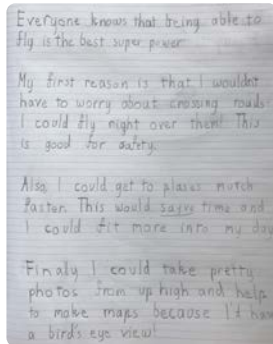 Everyone knows that being able to
fly is the best super power
My first reason is that I wouldn't
have to worry about crossing roads
I could fly right over them! This
is good for safety.
Also, I could get to plases mutch
faster. This would sayve time and
I could fit more into my day
Finaly I could take pretty
photos from up high and help
to make maps because I'd have
a bird's eye view!